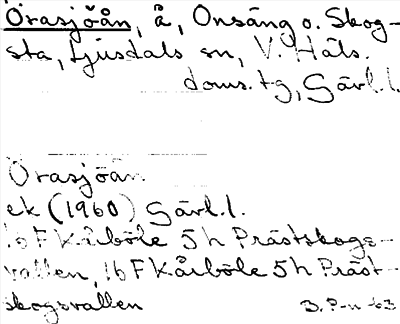 Orasjöån, å, Onsäng o. Skog-
sta, Ljusdals sn, V. Häls.
doms. tg, Gävl. l.
Orasjöån
ek (1960) Gävl. l.
16 F Kårböle 5 h Prästskogs-
vallen, 16 F Kårböle 5 h Präst-
skogsvallen